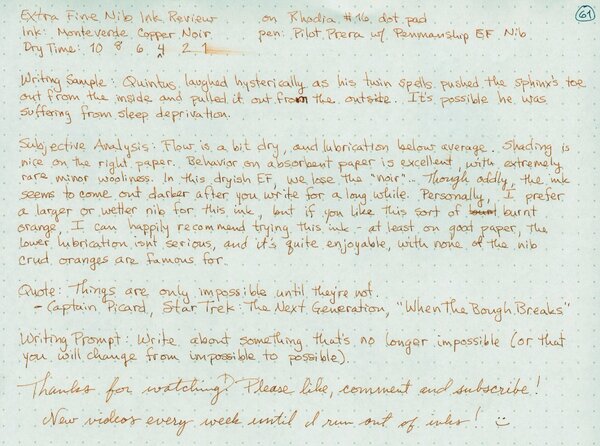 Extra Fine Nib Ink Review on Rhodia #16 dot pad 61
Ink: Monteverde Copper Noir pen: Pilot Prera w/ Penmanship EF Nib
Dry Time: 10 8 6 4 2 1
Writing Sample: Quintus laughed hysterically as his twin spells pushed the sphinx's toe
out from the inside and pulled it out from the outside. It's possible he was
suffering from sleep deprivation.
Subjective Analysis: Flow is a bit dry, and lubrication below average. Shading is
nice on the right paper. Behavior on absorbent paper is excellent, with extremely
rare minor wooliness. In this dryish EF, we lose the "noir"... Though oddly, the ink
seems to come out darker after you write for a long while. Personally, I prefer
a larger or wetter nib for this ink, but if you like this sort of burnt
orange, I can happily recommend trying this ink - at least on good paper, the
lower lubrication isn't serious, and it's quite enjoyable, with none of the nib
crud oranges are famous for.
Quote: Things are only impossible until they're not.
- Captain Picard, Star Trek: The Next Generation, "When The Bough Breaks"
Writing Prompt: Write about something that's no longer impossible (or that
you will change from impossible to possible).
Thanks for watching! Please like, comment and subscribe!
New videos every week until I run out of inks! :)